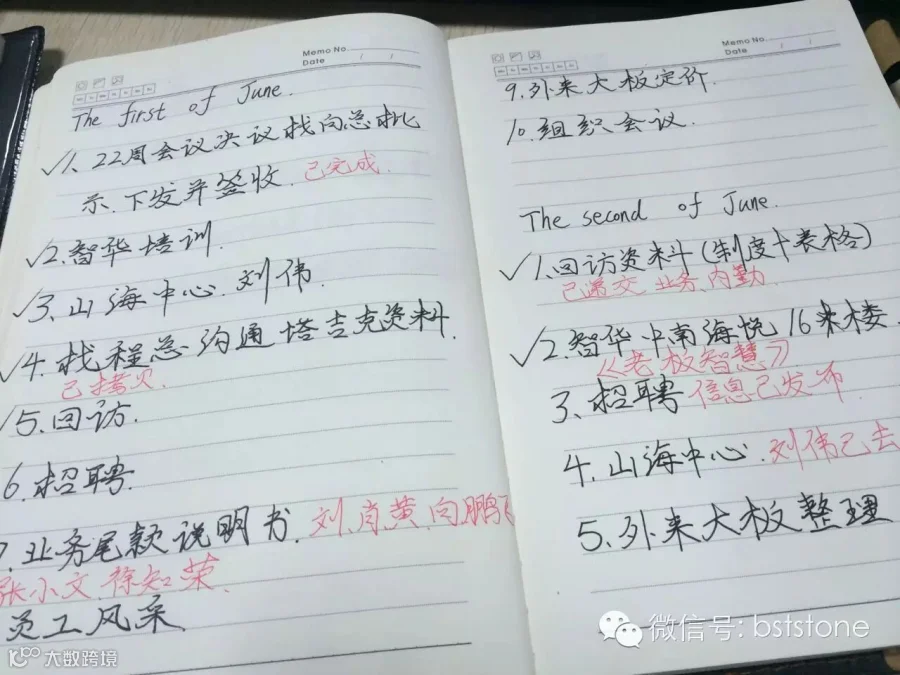 Memo No.
Date / /
The first of June.
✓1、22周会议决议找向总批
示.下发并签收. 已完成.
✓2.智华培训.
✓3、山海中心.刘伟.
✓4.找程总沟通塔吉克资料.
已拷贝.
✓5.回访.
6.招聘.
7.业务尾款说明书.刘.肖.黄.向.鹏飞
张小文.徐知荣.
员工风采
Memo No.
Date / /
9.外来大板定价.
10.组织会议.
The second of June.
✓1.回访资料(制度+表格)
已递交.业务.内勤.
✓2.智华中南海悦16来楼.
《老板智慧》
3、招聘 信息已发布.
4.山海中心.刘伟已去
5.外来大板整理
微信号: bststone
大数跨境